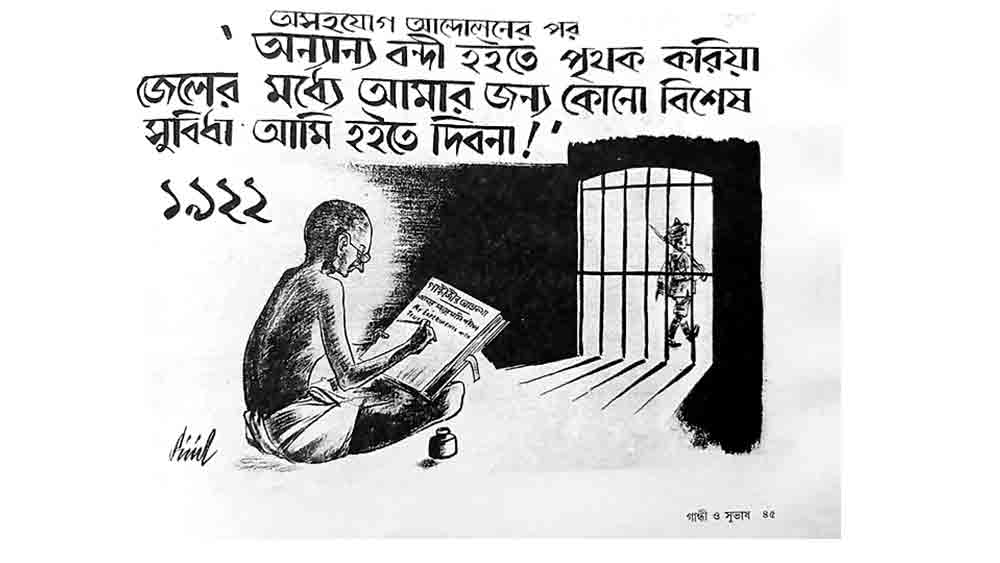 অসহযোগ আন্দোলনের পর
'অন্যান্য বন্দী হইতে পৃথক করিয়া
জেলের মধ্যে আমার জন্য কোনো বিশেষ
সুবিধা আমি হইতে দিবনা!'
১৯২২
গান্ধীজীর আত্মকথা
My Experiments with
Truth
গান্ধী ও সুভাষ ৪৫